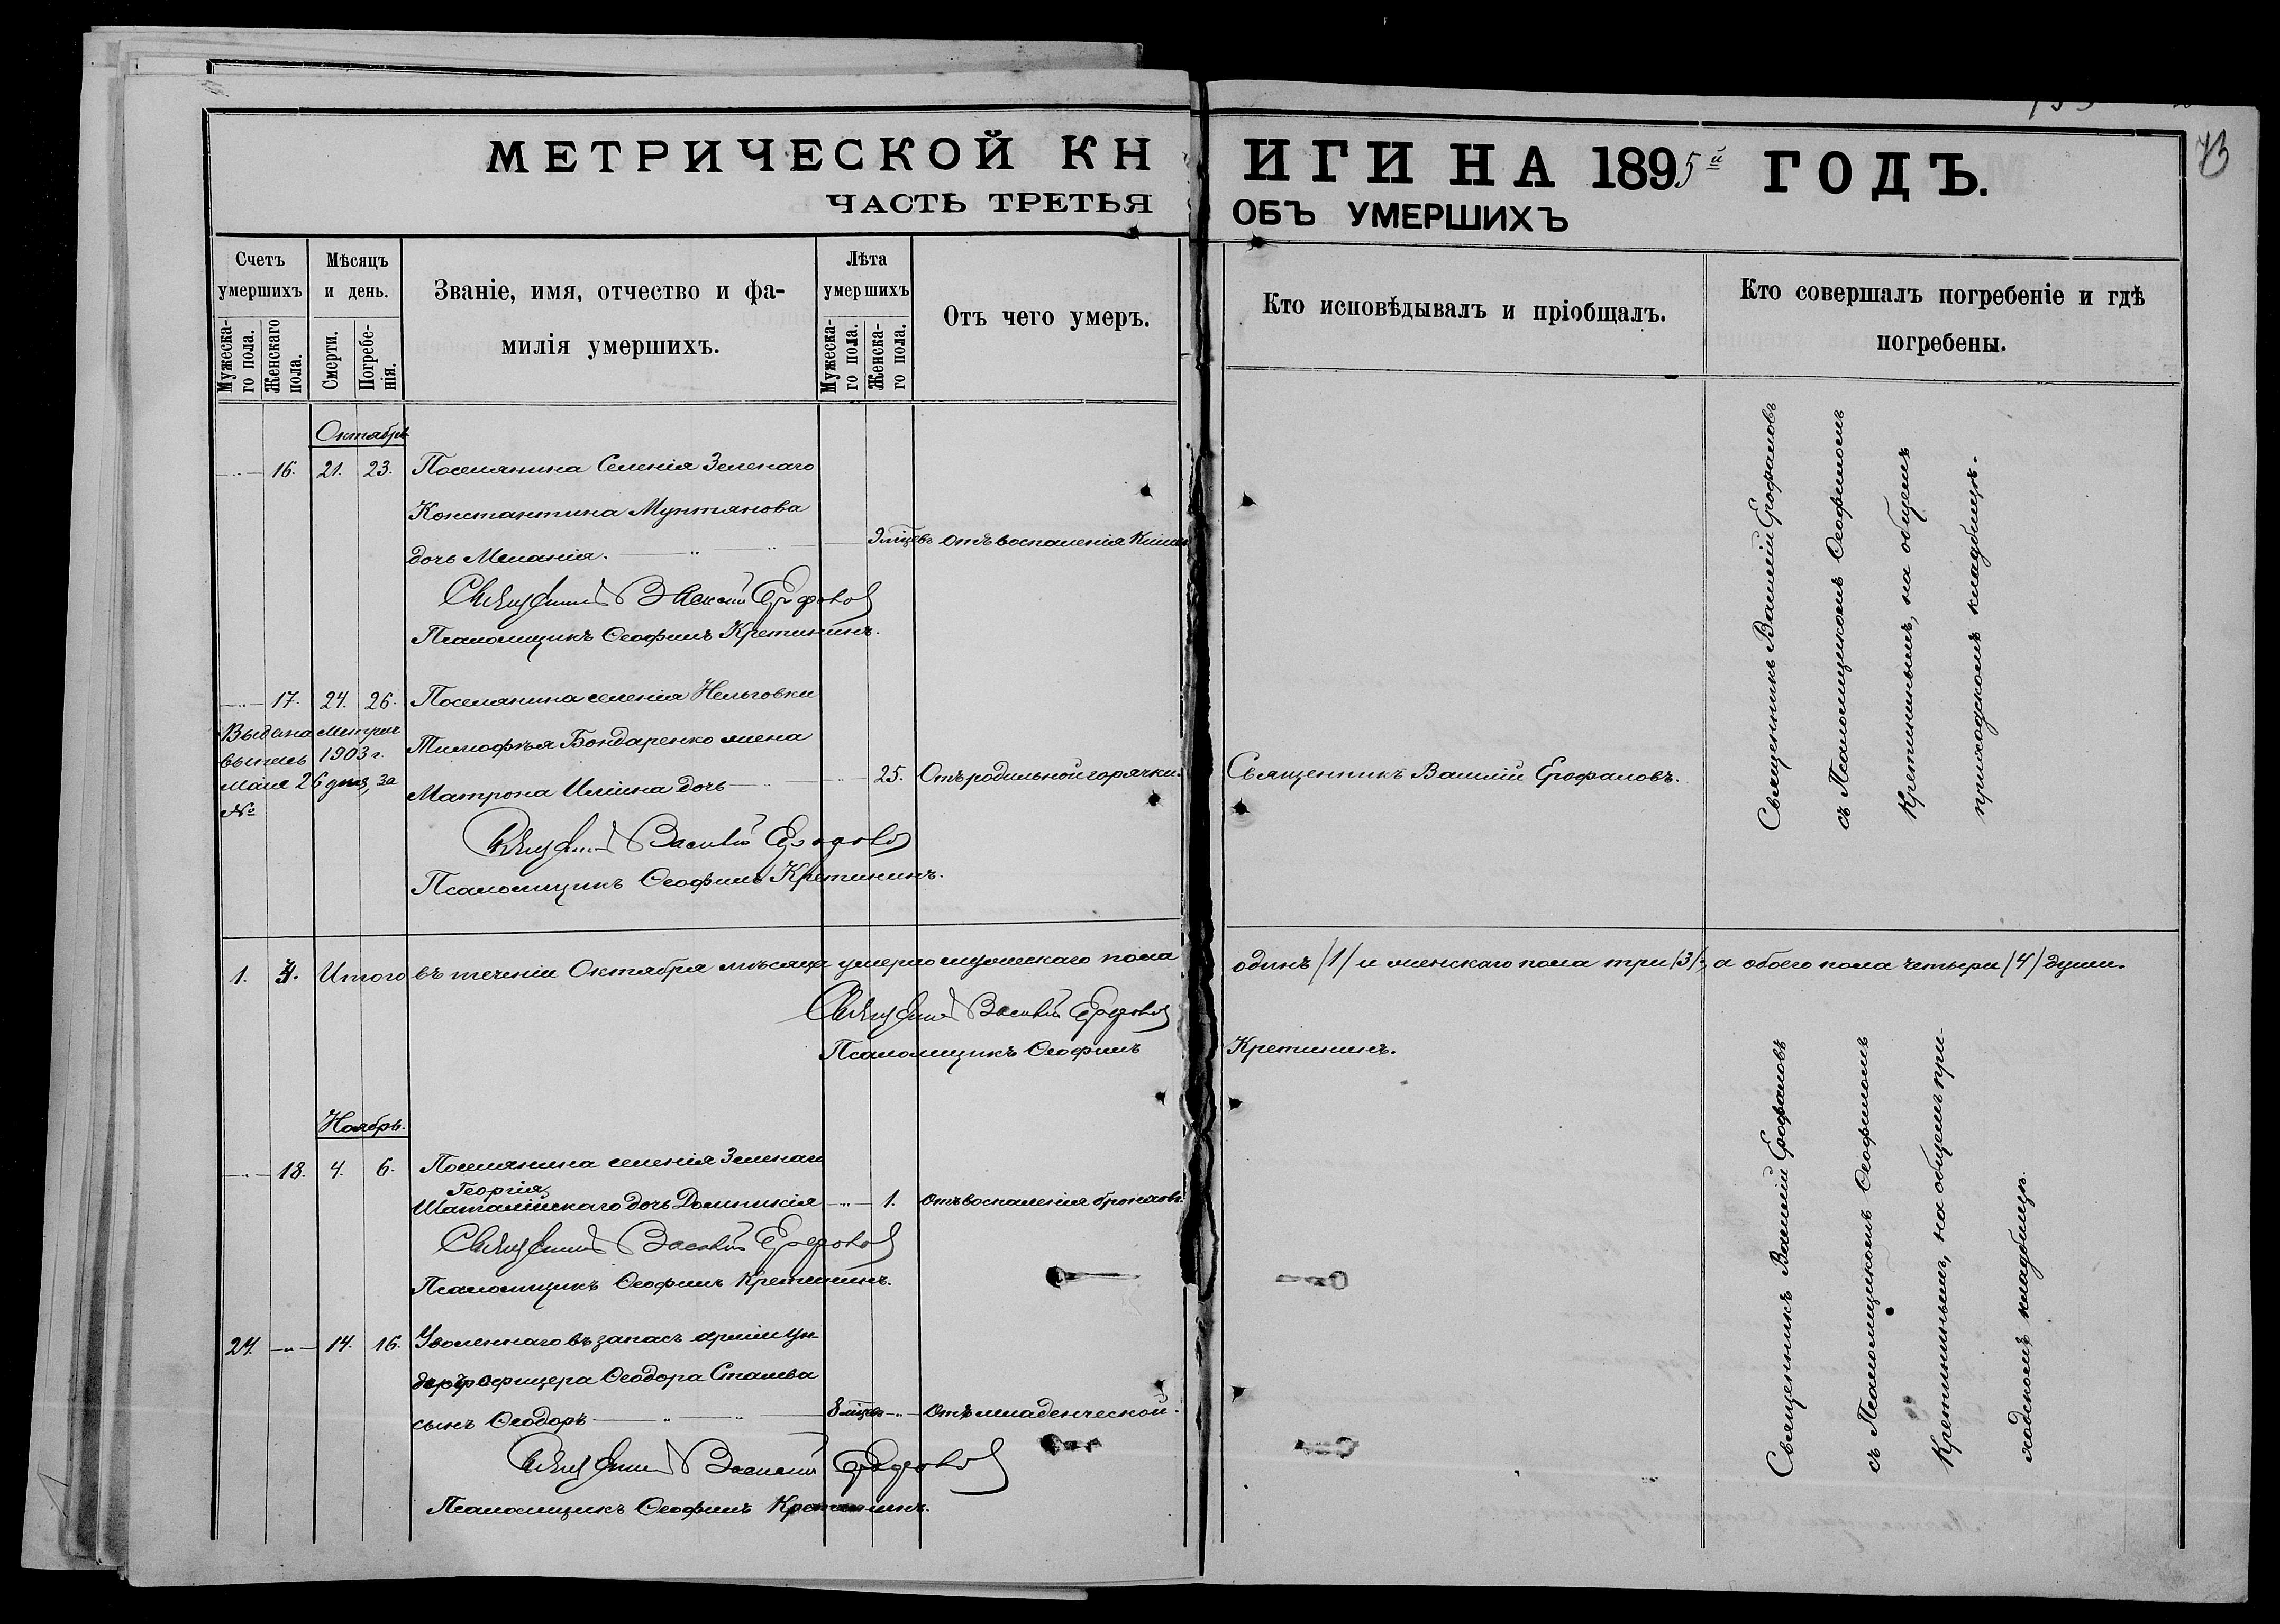 МЕТРИЧЕСКОЙ КНИГИ НА 1895й ГОДЪ.
73
ЧАСТЬ ТРЕТЬЯ ОБЪ УМЕРШИХЪ
Счетъ умершихъ
Мужеска-го пола.
Женскаго пола.
Мѣсяцъ и день.
Смерти.
Погребе-нія.
Званіе, имя, отчество и фа-
милія умершихъ.
Лѣта умершихъ
Мужеска-го пола.
Женска-го пола.
Отъ чего умеръ.
Кто исповѣдывалъ и пріобщалъ.
Кто совершалъ погребеніе и гдѣ
погребены.
Октябрь
16. 21. 23. Поселянина Селенія Зеленаго
Константина Мунтянова
дочь Меланія. 3 мѣцевъ отъ воспаленія Кишек
Священникъ Василій Ерофаловъ
Псаломщикъ Ѳеофилъ Кретининъ.
Священникъ Василій Ерофаловъ
съ Псаломщикомъ Ѳеофиломъ
Кретининымъ, на общемъ
приходскомъ кладбищѣ.
17. 24. 26. Поселянина селенія Нельговки
Тимофѣя Бондаренко жена
Матрона Иліина дочь 25. Отъ родильной горячки. Священникъ Василій Ерофаловъ.
Выдана Метрич
выпись 1903 г.
Мая 26 дня, за
№
Священникъ Василій Ерофаловъ
Псаломщикъ Ѳеофилъ Кретининъ.
1. 3. Итого въ теченіи Октября мѣсяца умерло мужескаго пола одинъ /1/ и женскаго пола три /3/, а обоего пола четыри /4/ души.
Священникъ Василій Ерофаловъ
Псаломщикъ Ѳеофилъ Кретининъ.
Ноябрь.
18. 4. 6. Поселянина селенія Зеленаго
Георгія
Шаталійскаго дочь Домникія 1. Отъ воспаленія бронховъ.
Священникъ Василій Ерофаловъ
Псаломщикъ Ѳеофилъ Кретининъ.
24. 14. 16. Уволеннаго въ запасъ арміи ун
деръ офицера Ѳеодора Сталева
сынъ Ѳеодоръ 8 мѣцев Отъ младенческой.
Священникъ Василій Ерофаловъ
Псаломщикъ Ѳеофилъ Кретининъ.
Священникъ Василій Ерофаловъ
съ Псаломщикомъ Ѳеофиломъ
Кретининымъ, на общемъ при-
ходскомъ кладбищѣ.